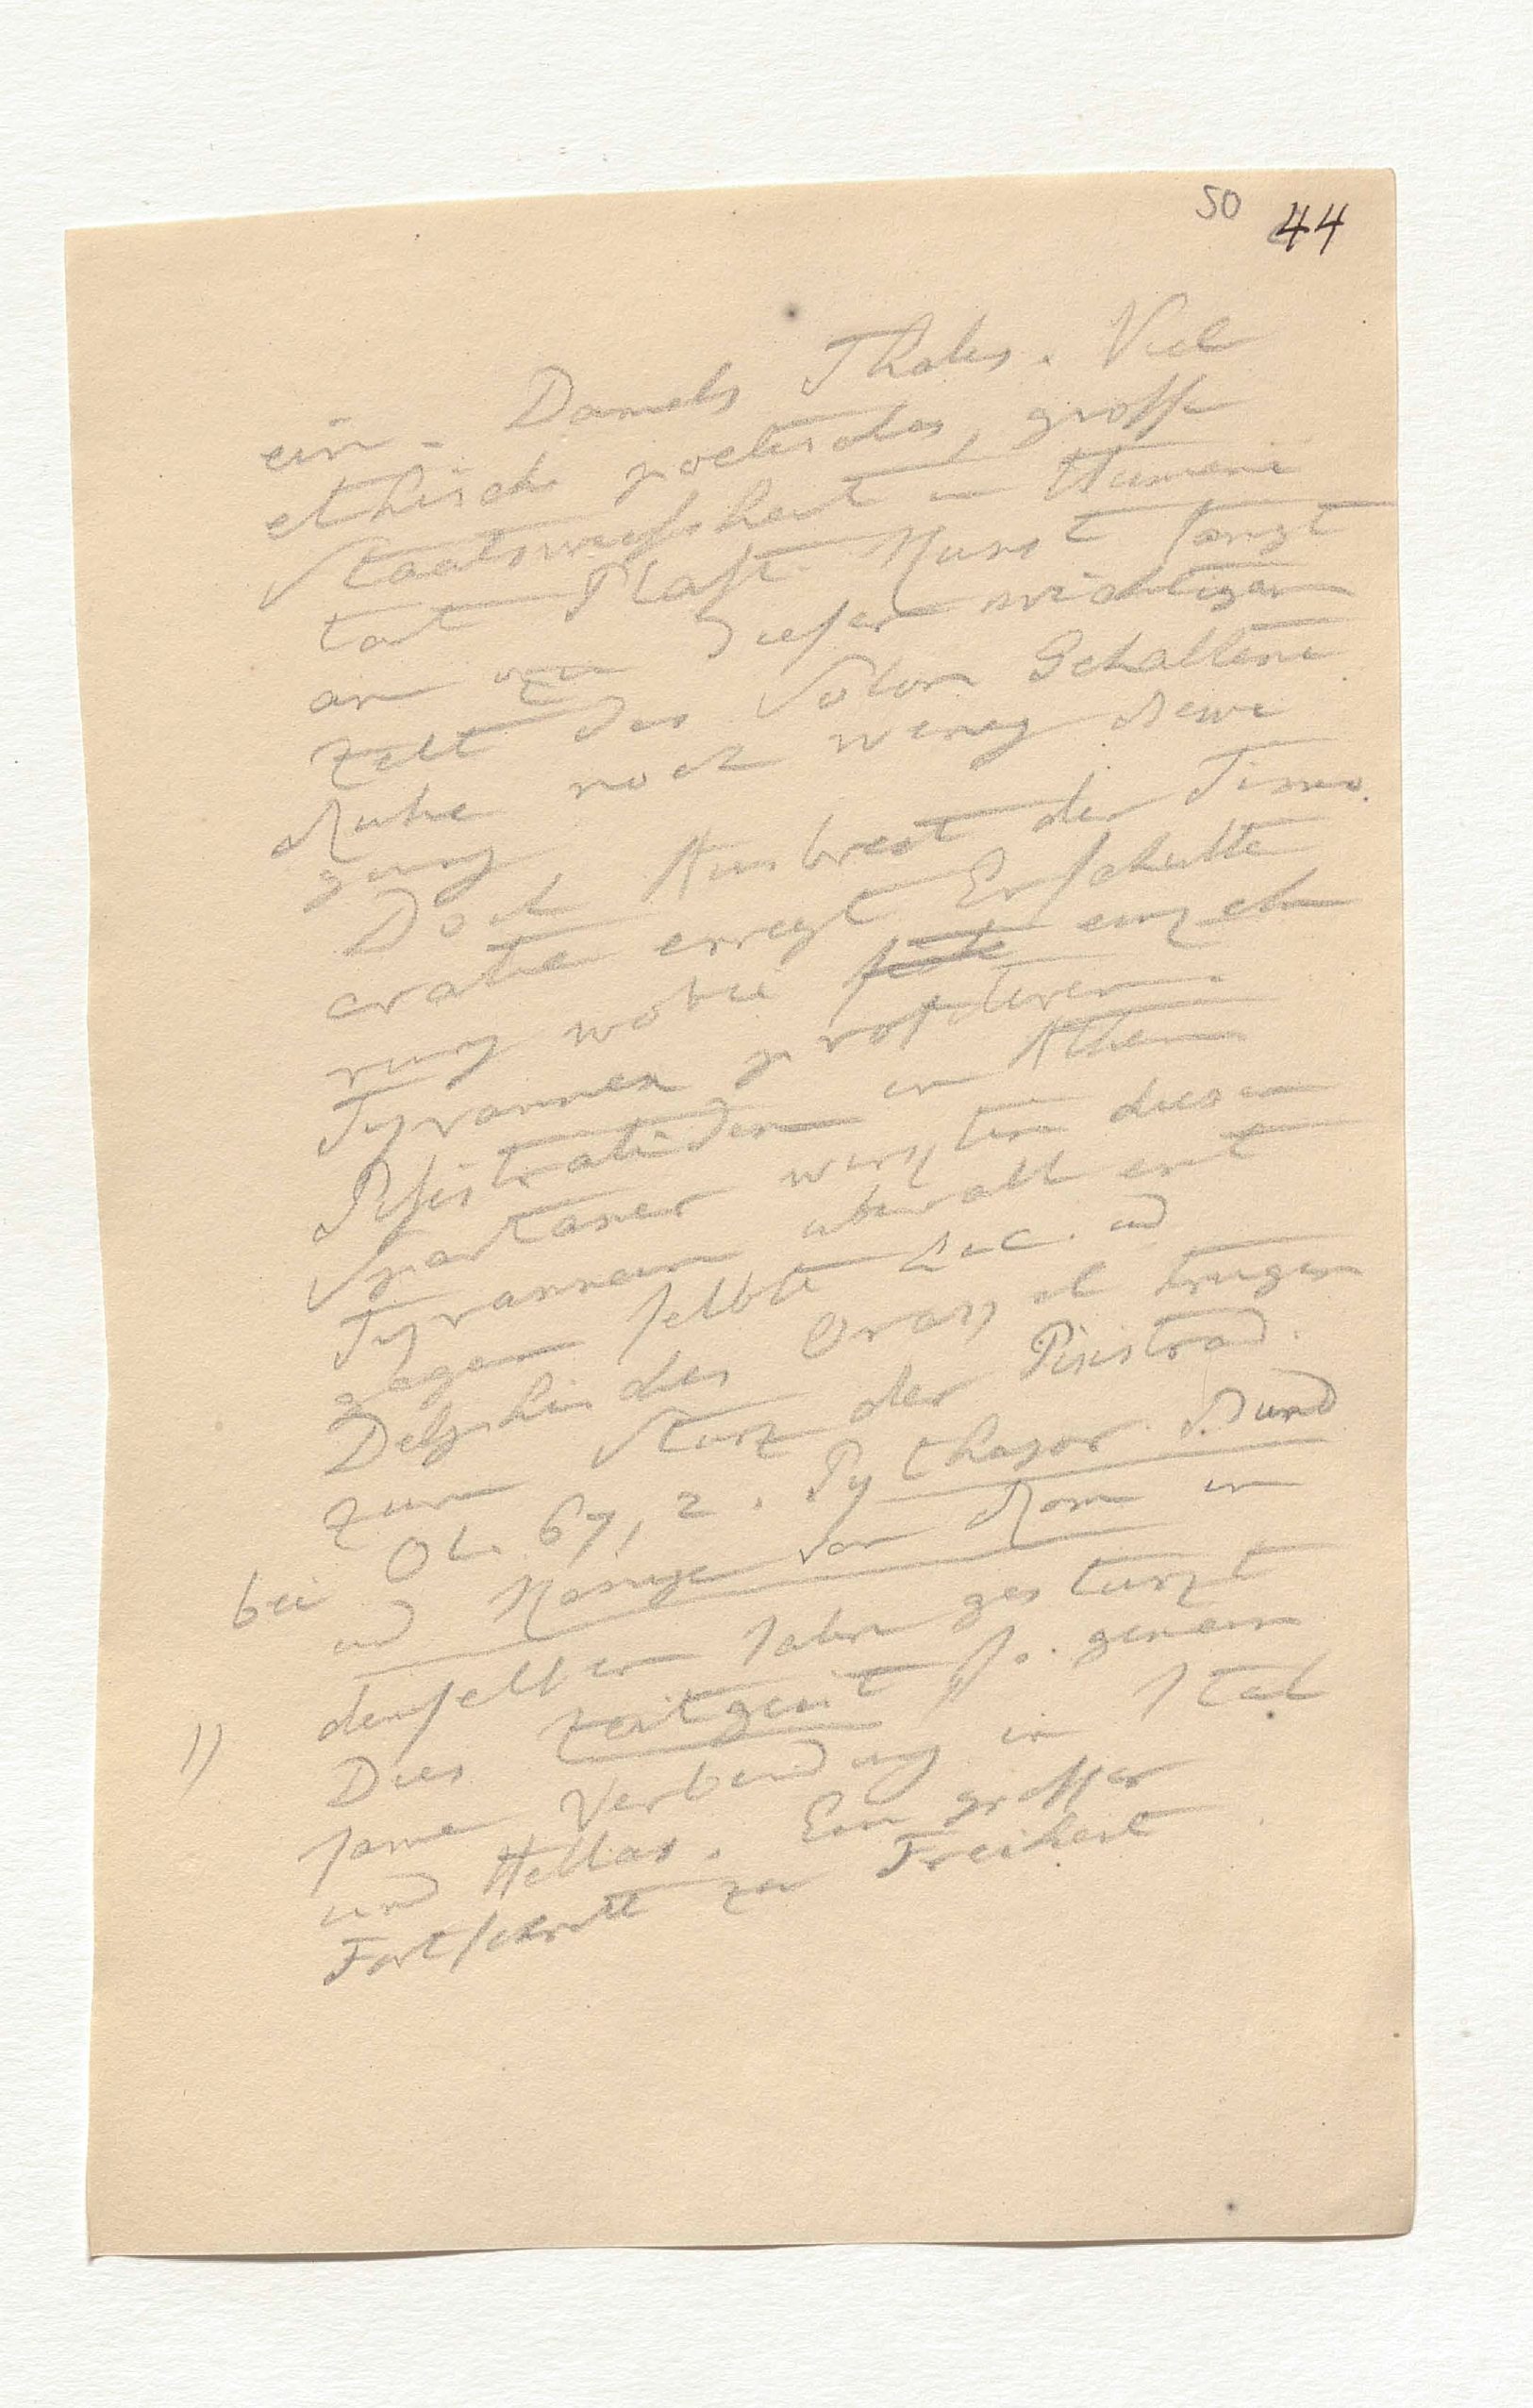 50 44
ein. Damals Thales. Viel
ethisch poetisches, grosse
Staatsweisheit u Humani
tät Plast. Kunst fängt
an zu dieser wichtigen
Zeit des Solon Gehaltene
Ruhe noch wenig Bewe
gung
Doch Ausbreit der Timo
cratie erregt Erschütte
rung wobei einzeln
Tyrannen profitiren.
Pisistratiden in Athen
Spartaner wirkten diesen
Tyrannen überall ent
gegen selbst Lac. ud
Delphisches Orakel trugen
zum Sturz der Pisistrad.
bei Ol. 67, 2. Pythagor Bund
ud Könige von Rom in
denselben Jahren gestürzt
11 Dies Zeitgeist so gemein
same Verbindung in Ital
und Hellas. Ein grosser
Fortschritt zu Freiheit